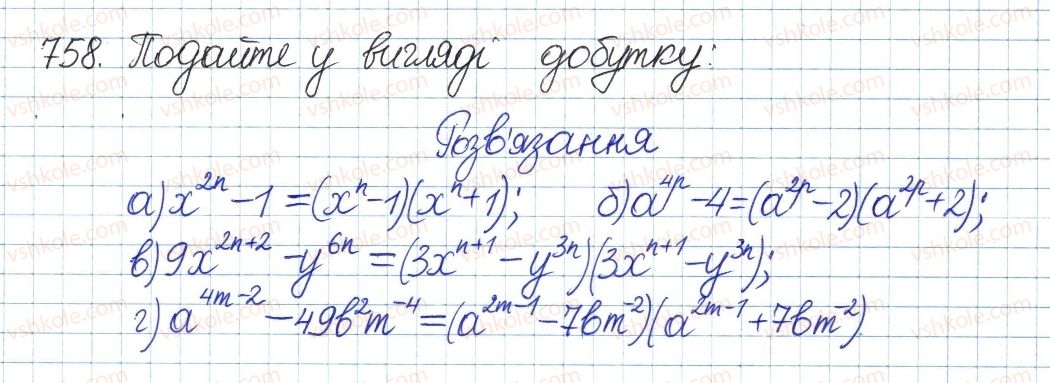 758. Подайте у вигляді добутку:
Розв'язання
а) x^{2n} - 1 = (x^n - 1)(x^n + 1); б) a^{4p} - 4 = (a^{2p} - 2)(a^{2p} + 2);
в) 9x^{2n+2} - y^{6n} = (3x^{n+1} - y^{3n})(3x^{n+1} - y^{3n});
г) a^{4m-2} - 49b^2m^{-4} = (a^{2m-1} - 7bm^{-2})(a^{2m-1} + 7bm^{-2})